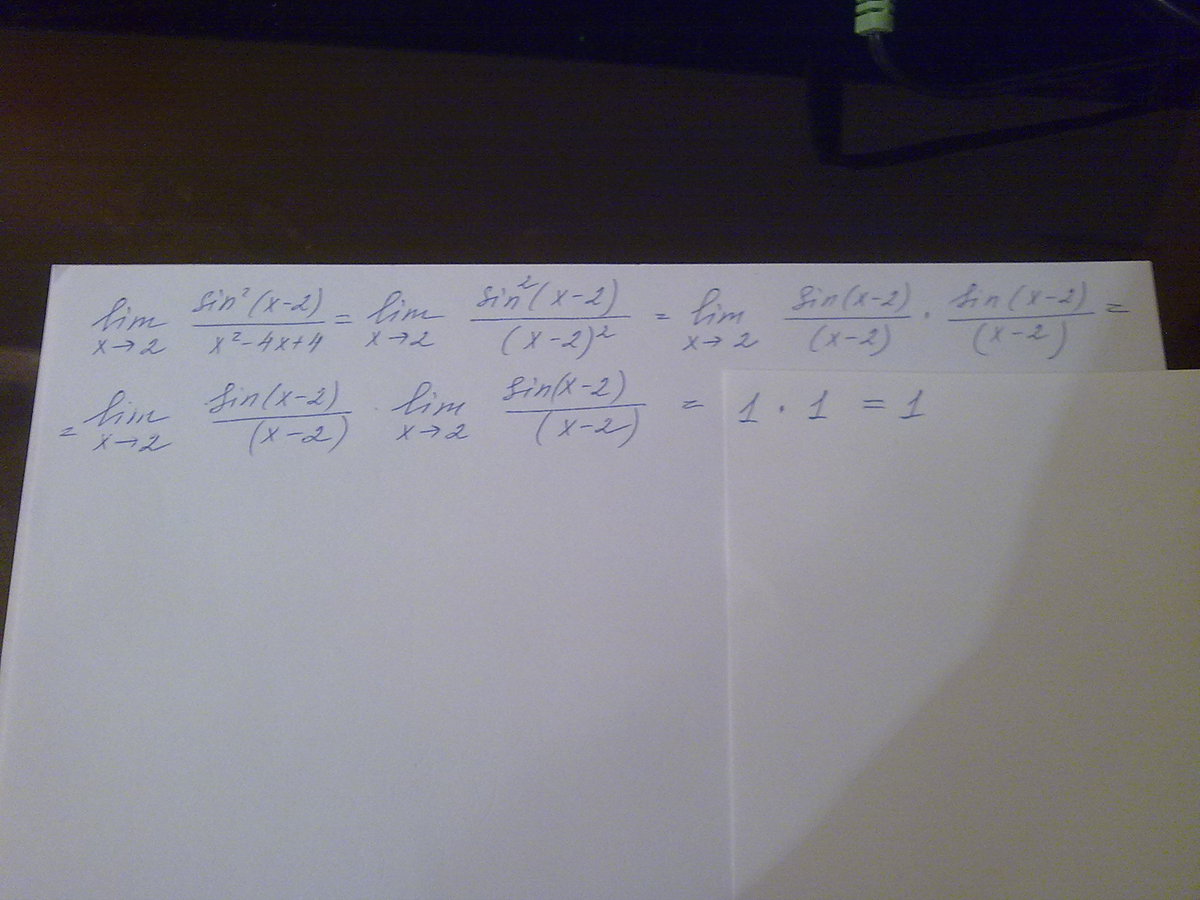 lim x→2 sin²(x-2)/x²-4x+4 = lim x→2 sin²(x-2)/(x-2)² = lim x→2 sin(x-2)/(x-2) · sin(x-2)/(x-2) =
= lim x→2 sin(x-2)/(x-2) · lim x→2 sin(x-2)/(x-2) = 1 · 1 = 1